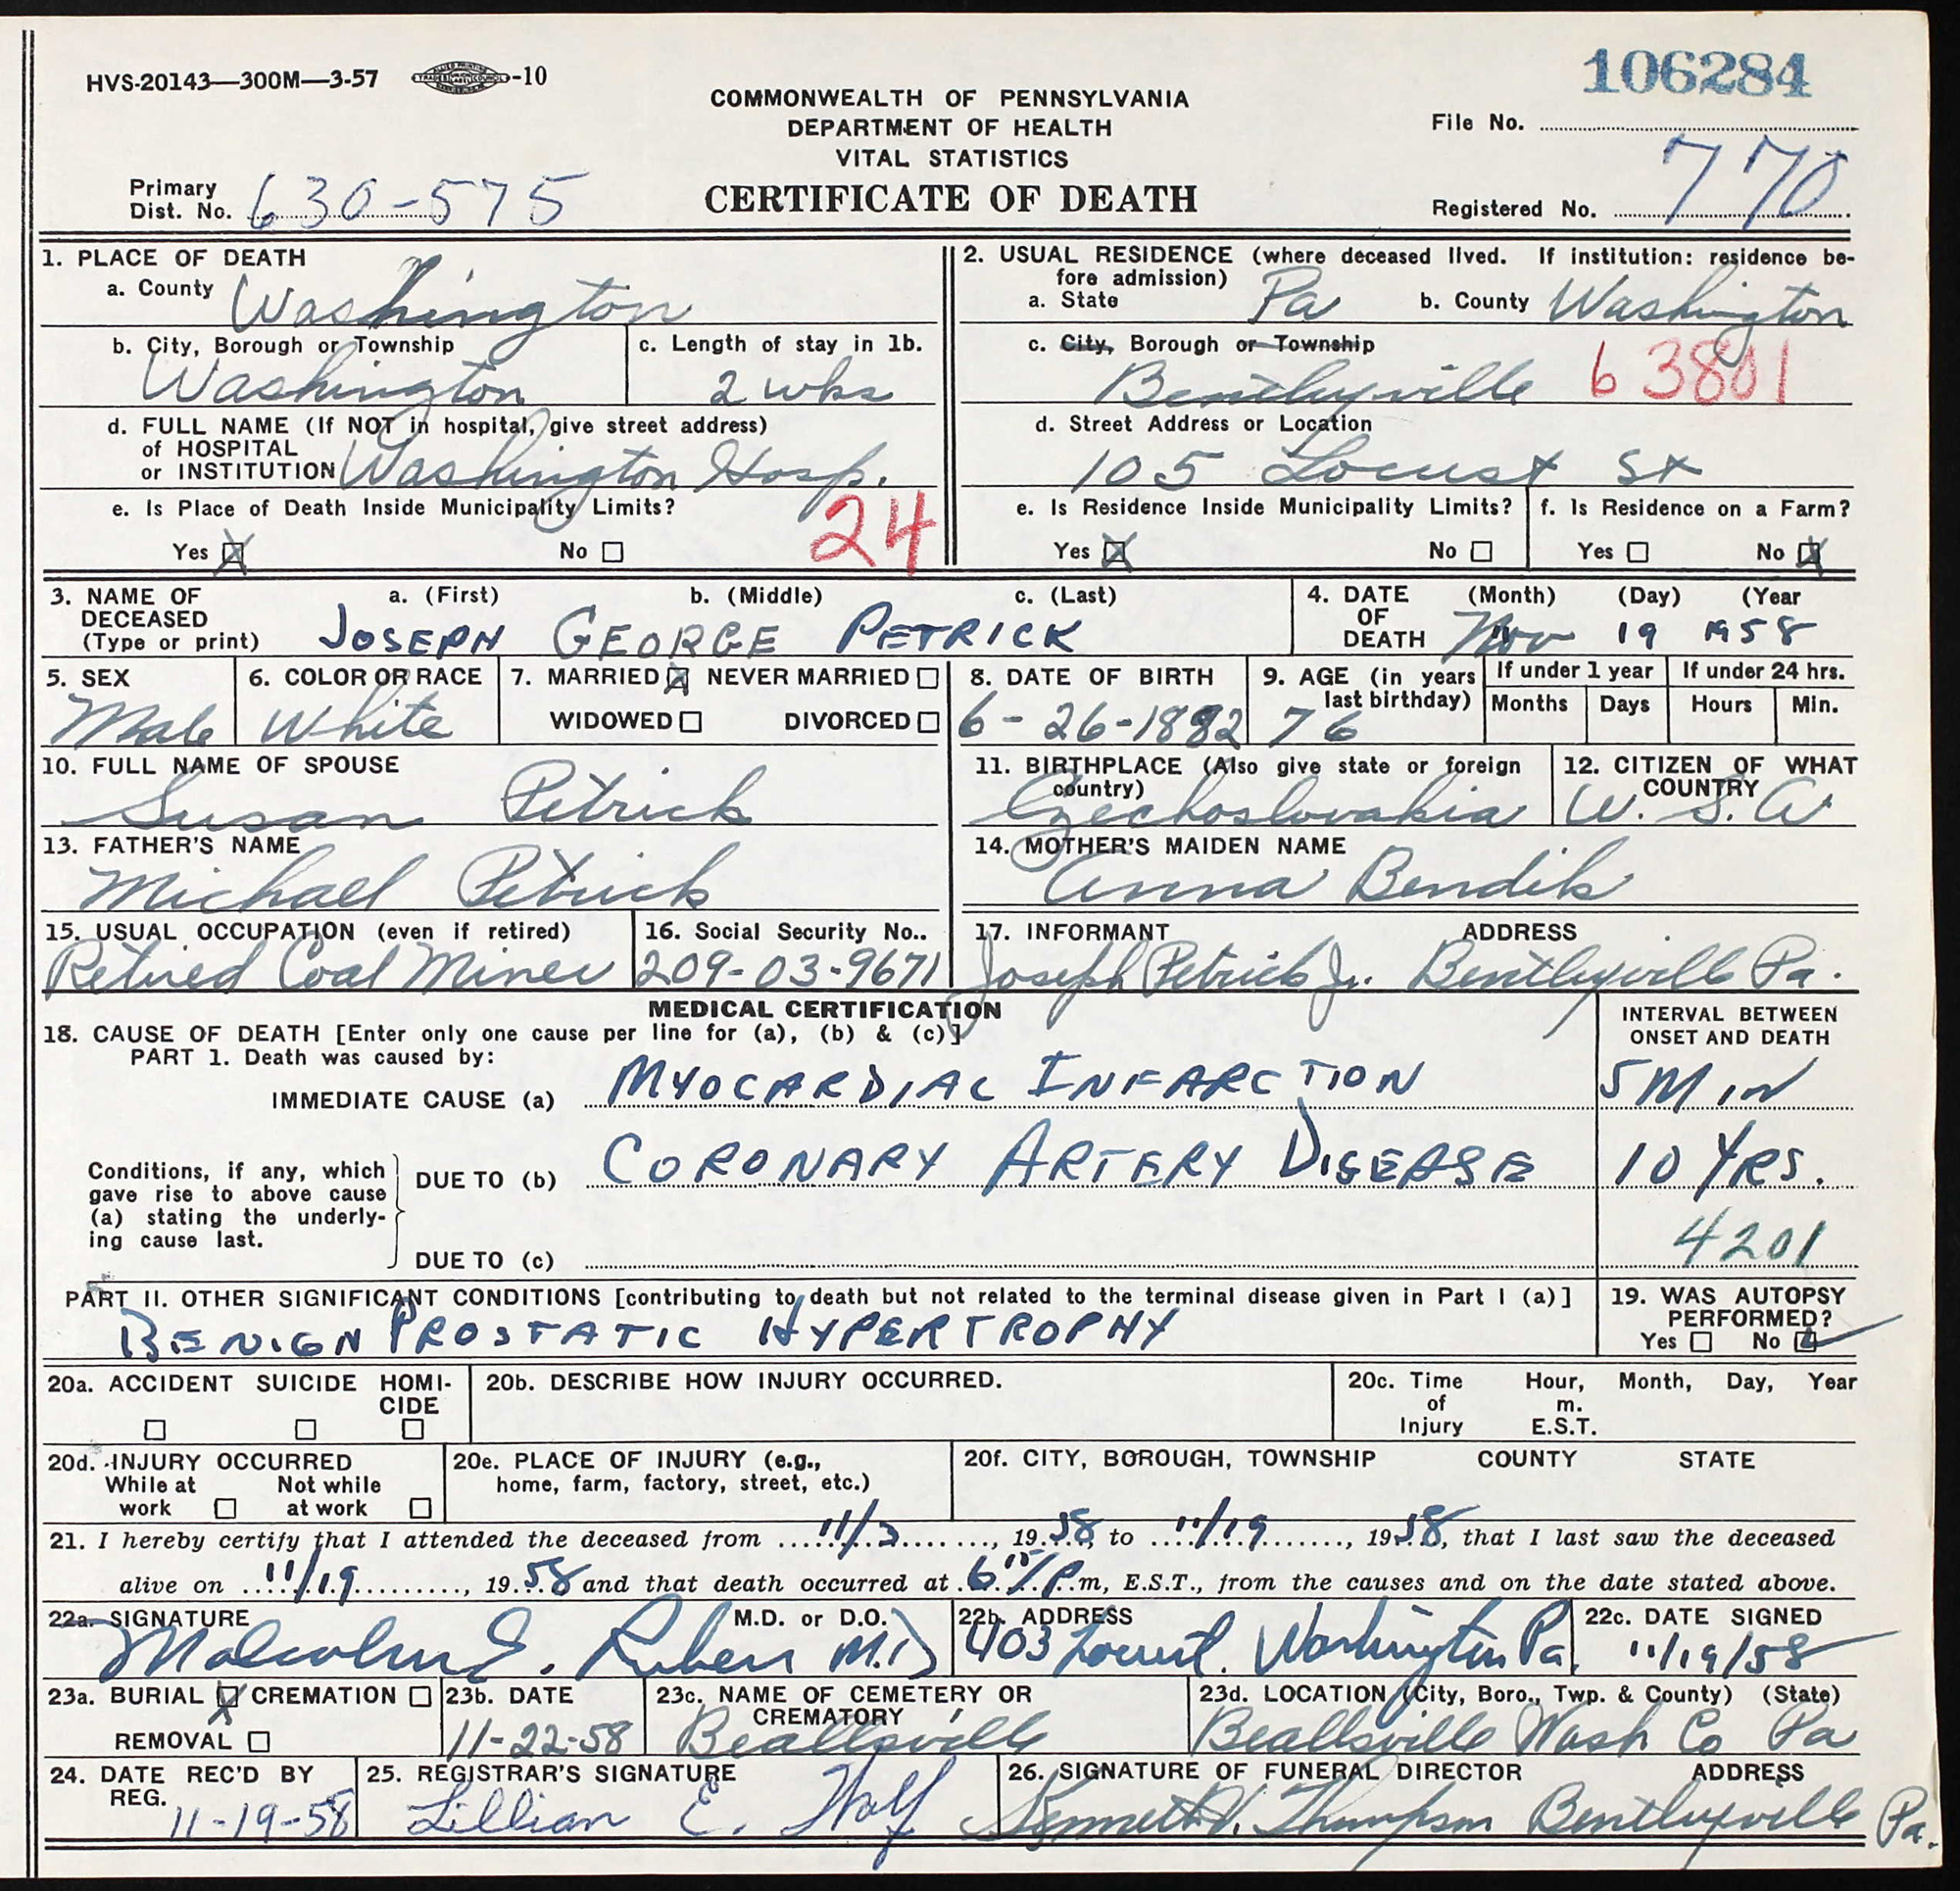 HVS-20143—300M—3-57 -10
106284
COMMONWEALTH OF PENNSYLVANIA
DEPARTMENT OF HEALTH
VITAL STATISTICS
CERTIFICATE OF DEATH
File No.
Primary Dist. No. 630-575
Registered No. 770
1. PLACE OF DEATH
a. County Washington
b. City, Borough or Township Washington
c. Length of stay in 1b. 2 wks
d. FULL NAME (If NOT in hospital, give street address)
of HOSPITAL
or INSTITUTION Washington Hosp.
e. Is Place of Death Inside Municipality Limits?
Yes X No
24
2. USUAL RESIDENCE (where deceased lived. If institution: residence be-
fore admission)
a. State Pa b. County Washington
c. City, Borough or Township
Bentleyville 63801
d. Street Address or Location
105 Locust St
e. Is Residence Inside Municipality Limits?
Yes X No
f. Is Residence on a Farm?
Yes No X
3. NAME OF DECEASED (Type or print)
a. (First) b. (Middle) c. (Last)
JOSEPH GEORGE PETRICK
4. DATE OF DEATH (Month) (Day) (Year
Nov 19 1958
5. SEX
Male
6. COLOR OR RACE
White
7. MARRIED X NEVER MARRIED
WIDOWED DIVORCED
8. DATE OF BIRTH
6-26-1882
9. AGE (in years last birthday)
76
If under 1 year
Months Days
If under 24 hrs.
Hours Min.
10. FULL NAME OF SPOUSE
Susan Petrick
11. BIRTHPLACE (Also give state or foreign country)
Czechoslovakia
12. CITIZEN OF WHAT COUNTRY
U. S. A
13. FATHER'S NAME
Michael Petrick
14. MOTHER'S MAIDEN NAME
Anna Bendik
15. USUAL OCCUPATION (even if retired)
Retired Coal Miner
16. Social Security No..
209-03-9671
17. INFORMANT ADDRESS
Joseph Petrick Jr. Bentleyville Pa.
MEDICAL CERTIFICATION
18. CAUSE OF DEATH [Enter only one cause per line for (a), (b) & (c)]
PART 1. Death was caused by:
INTERVAL BETWEEN
ONSET AND DEATH
IMMEDIATE CAUSE (a) MYOCARDIAL INFARCTION 5 MIN
Conditions, if any, which
gave rise to above cause
(a) stating the underly-
ing cause last.
DUE TO (b) CORONARY ARTERY DISEASE 10 YRS.
4201
DUE TO (c)
PART II. OTHER SIGNIFICANT CONDITIONS [contributing to death but not related to the terminal disease given in Part I (a)]
BENIGN PROSTATIC HYPERTROPHY
19. WAS AUTOPSY PERFORMED?
Yes No
20a. ACCIDENT SUICIDE HOMI-
CIDE
20b. DESCRIBE HOW INJURY OCCURRED.
20c. Time of Injury Hour, Month, Day, Year
m.
E.S.T.
20d. INJURY OCCURRED
While at work Not while at work
20e. PLACE OF INJURY (e.g.,
home, farm, factory, street, etc.)
20f. CITY, BOROUGH, TOWNSHIP COUNTY STATE
21. I hereby certify that I attended the deceased from 11/3, 1958, to 11/19, 1958, that I last saw the deceased
alive on 11/19, 1958 and that death occurred at 6 15/P.m, E.S.T., from the causes and on the date stated above.
22a. SIGNATURE M.D. or D.O.
Malcolm E. Ruben M.D
22b. ADDRESS
403 Locust. Washington Pa.
22c. DATE SIGNED
11/19/58
23a. BURIAL X CREMATION
REMOVAL
23b. DATE
11-22-58
23c. NAME OF CEMETERY OR CREMATORY
Beallsville
23d. LOCATION (City, Boro., Twp. & County) (State)
Beallsville Wash Co Pa
24. DATE REC'D BY REG.
11-19-58
25. REGISTRAR'S SIGNATURE
Lillian E.
26. SIGNATURE OF FUNERAL DIRECTOR ADDRESS
Kenneth V. Thompson Bentleyville Pa.